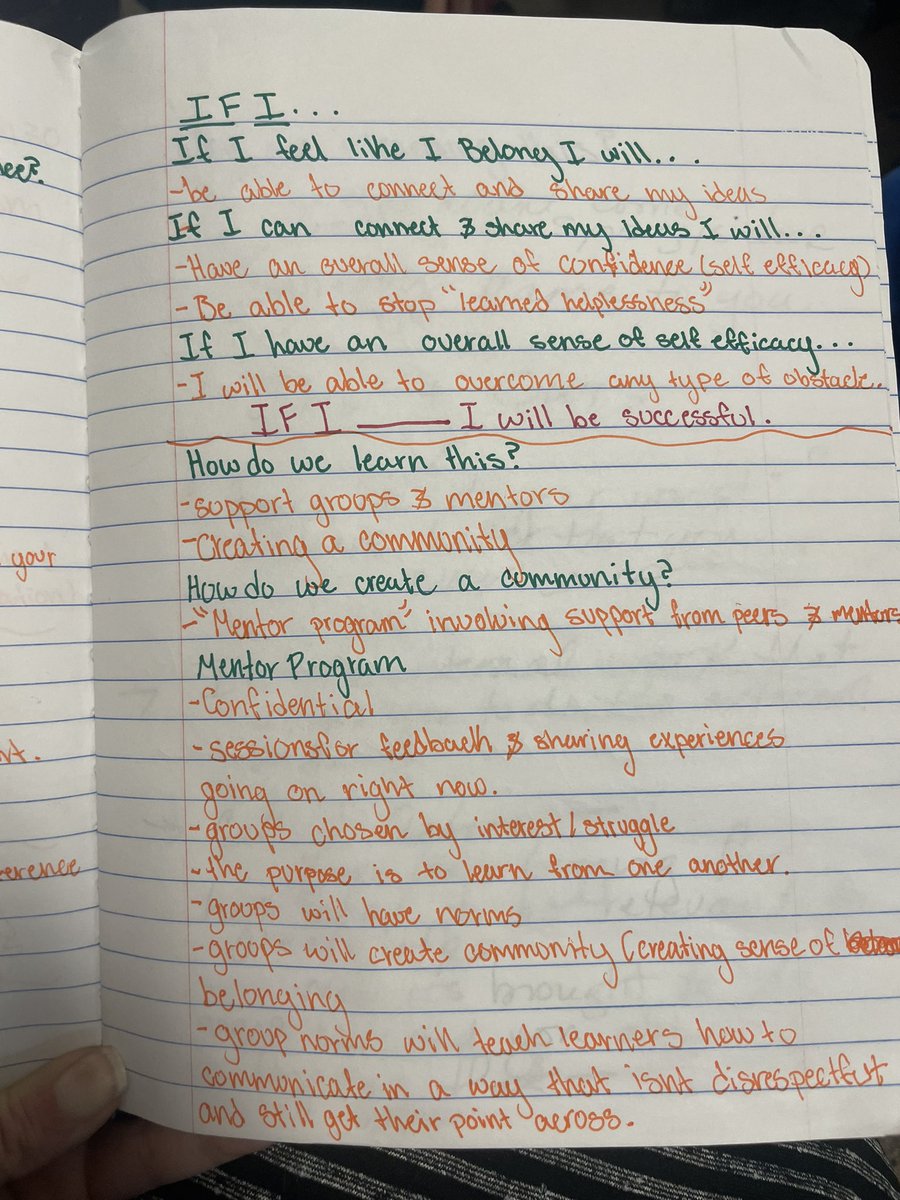 IF I...
If I feel like I Belong I will...
-be able to connect and share my ideas
If I can connect & share my Ideas I will...
-Have an overall sense of confidence (self efficacy)
-Be able to stop "learned helplessness"
If I have an overall sense of self efficacy...
-I will be able to overcome any type of obstacle.
IF I ______ I will be successful.
How do we learn this?
-support groups & mentors
-Creating a community
How do we create a community?
-"Mentor program" involving support from peers & mentors
Mentor Program
-Confidential
-sessions for feedback & sharing experiences
going on right now.
-groups chosen by interest/struggle
-the purpose is to learn from one another.
-groups will have norms
-groups will create community (creating sense of
belonging
-group norms will teach learners how to
communicate in a way that isnt disrespectful
and still get their point across.
your
erence